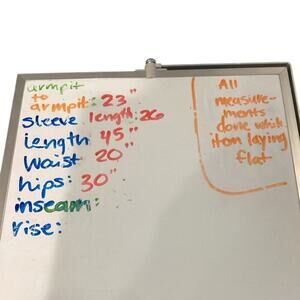 armpit
to
armpit: 23"
Sleeve length: 26
Length 45"
Waist 20"
hips: 30"
inseam:
rise:
All
measure-
ments
done while
item laying
flat